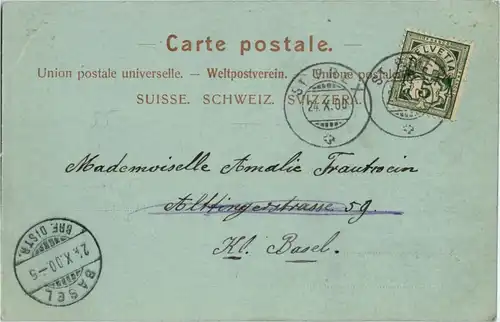 Carte postale.
Union postale universelle. — Weltpostverein. — Unione postale
SUISSE. SCHWEIZ. SVIZZERA.
HELVETIA
5
24.X.00
Mademoiselle Amalie Trautwein
59.
Kl. Basel.
BRF. DISTR.
24.X.00-5
BASEL